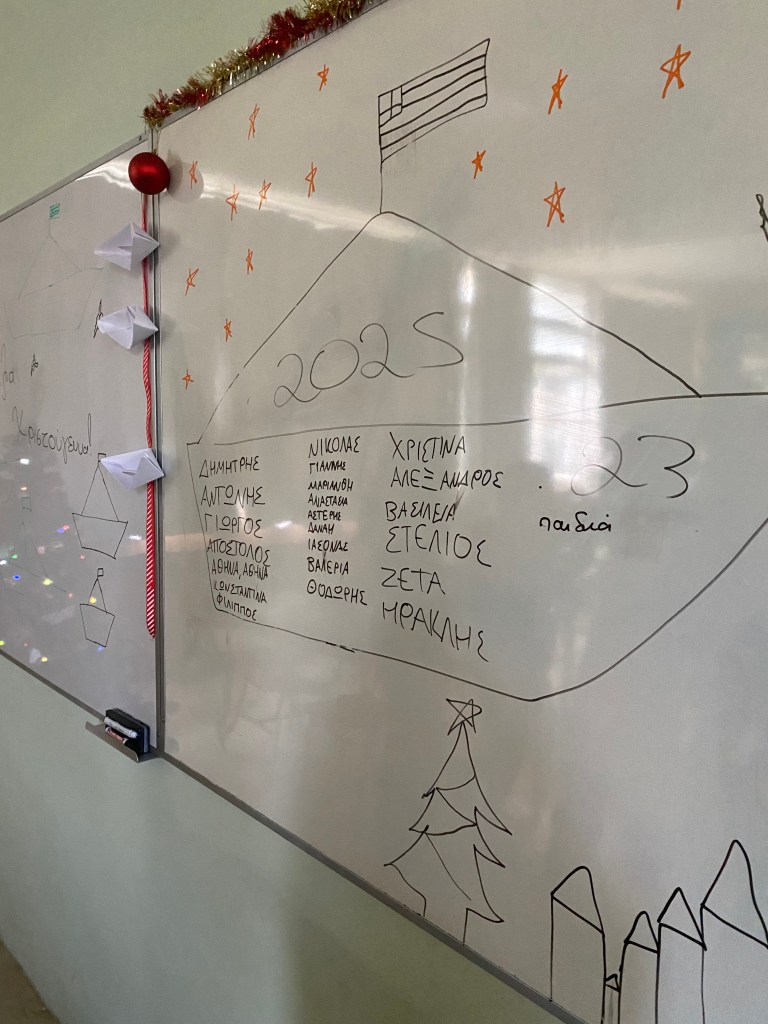 Χριστούγεννα!
2025
ΔΗΜΗΤΡΗΣ
ΑΝΤΩΝΗΣ
ΓΙΩΡΓΟΣ
ΑΠΟΣΤΟΛΟΣ
ΑΘΗΝΑ, ΑΘΗΝΑ
ΚΩΝΣΤΑΝΤΙΝΑ
ΦΙΛΙΠΠΟΣ
ΝΙΚΟΛΑΣ
ΓΙΑΝΝΗΣ
ΜΑΡΙΑΝΘΗ
ΑΣΤΕΡΗΣ
ΔΑΝΑΗ
ΙΑΣΟΝΑΣ
ΒΑΛΕΡΙΑ
ΘΟΔΩΡΗΣ
ΧΡΙΣΤΙΝΑ
ΑΛΕΞΑΝΔΡΟΣ
ΒΑΣΙΛΕΙΑ
ΣΤΕΛΙΟΣ
ΖΕΤΑ
ΗΡΑΚΛΗΣ
23
παιδιά